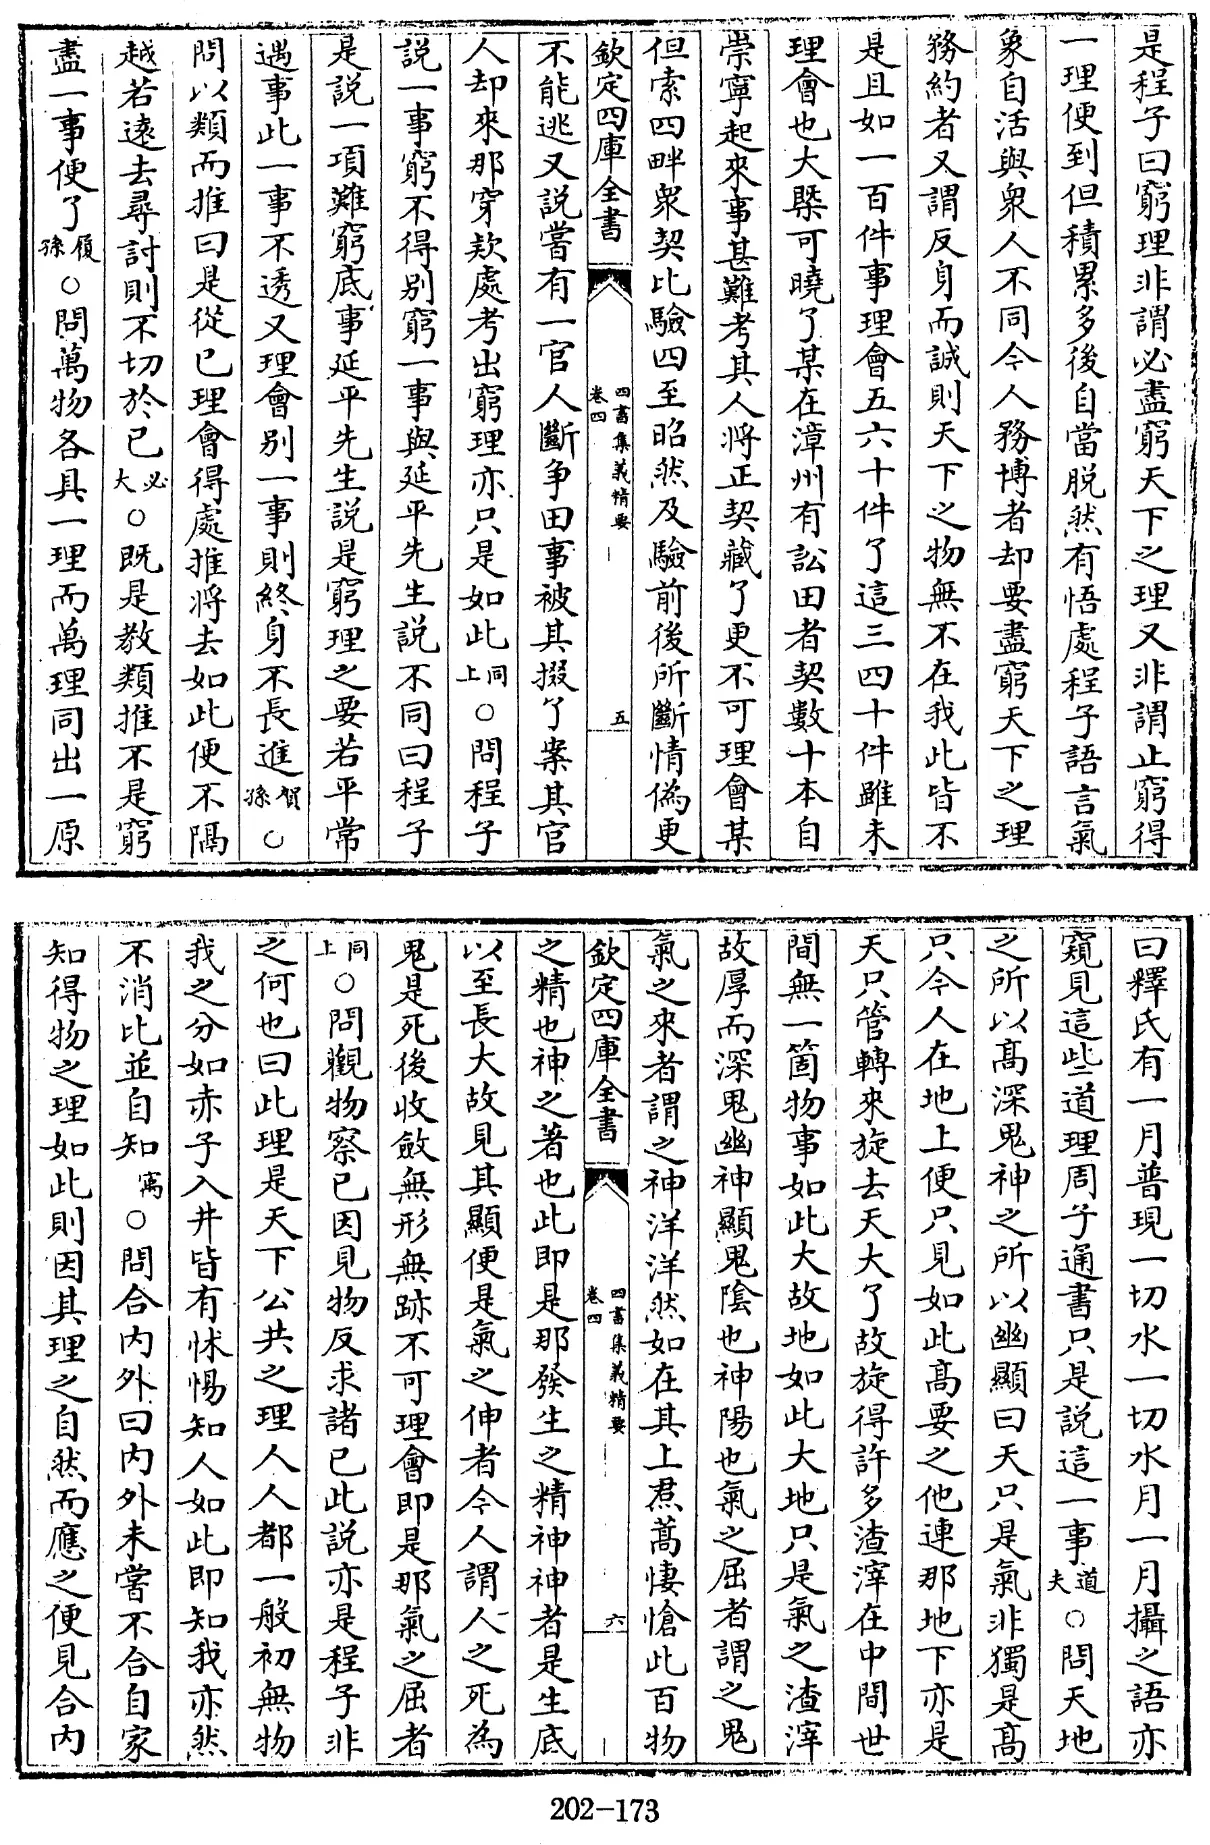 是程子曰窮理非謂必盡窮天下之理又非謂止窮得
一理便到但積累多後自當脱然有悟處程子語言氣
象自活與衆人不同今人務博者却要盡窮天下之理
務約者又謂反身而誠則天下之物無不在我此皆不
是且如一百件事理會五六十件了這三四十件雖未
理會也大槩可曉了某在漳州有訟田者契數十本自
崇寧起來事甚難考其人將正契藏了更不可理會某
但索四畔衆契比驗四至昭然及驗前後所斷情偽更
欽定四庫全書 卷四 四書集義精要 五
不能逃又説嘗有一官人斷争田事被其掇了案其官
人却來那穿欵處考出窮理亦只是如此同上○問程子
説一事窮不得别窮一事與延平先生説不同曰程子
是説一項難窮底事延平先生説是窮理之要若平常
遇事此一事不透又理會别一事則終身不長進賀孫○
問以類而推曰是從已理會得處推將去如此便不隔
越若遠去尋討則不切於已必大○既是教類推不是窮
盡一事便了履孫○問萬物各具一理而萬理同出一原
曰釋氏有一月普現一切水一切水月一月攝之語亦
窺見這些道理周子通書只是説這一事道夫○問天地
之所以髙深鬼神之所以幽顯曰天只是氣非獨是髙
只今人在地上便只見如此髙要之他連那地下亦是
天只管轉來旋去天大了故旋得許多渣滓在中間世
間無一箇物事如此大故地如此大地只是氣之渣滓
故厚而深鬼幽神顯鬼隂也神陽也氣之屈者謂之鬼
氣之來者謂之神洋洋然如在其上焄蒿悽愴此百物
欽定四庫全書 卷四 四書集義精要 六
之精也神之著也此即是那發生之精神神者是生底
以至長大故見其顯便是氣之伸者今人謂人之死為
鬼是死後收斂無形無跡不可理會即是那氣之屈者
同上○問觀物察已因見物反求諸已此説亦是程子非
之何也曰此理是天下公共之理人人都一般初無物
我之分如赤子入井皆有怵惕知人如此即知我亦然
不消比並自知㝢○問合内外曰内外未嘗不合自家
知得物之理如此則因其理之自然而應之便見合内
202-173